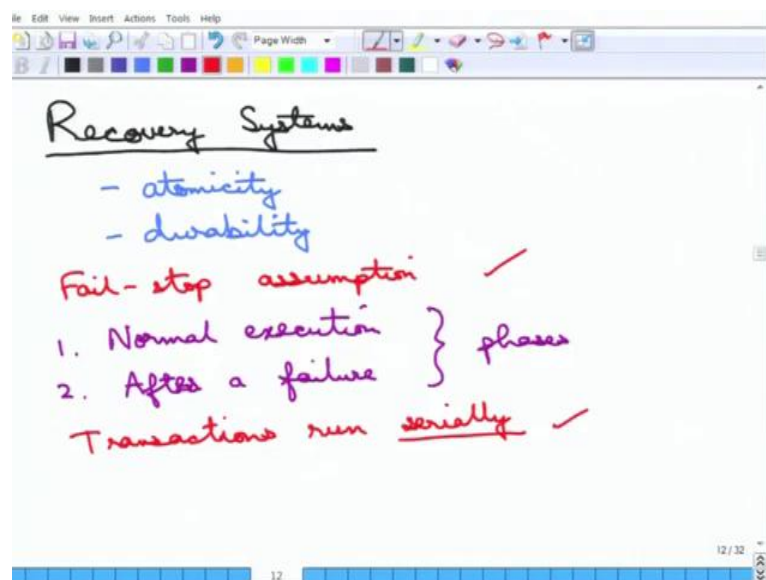 ile Edit View Insert Actions Tools Help
Page Width
B I
Recovery Systems
- atomicity
- durability
Fail-stop assumption ✓
1. Normal execution } phases
2. After a failure
Transactions run serially ✓
12/32
12